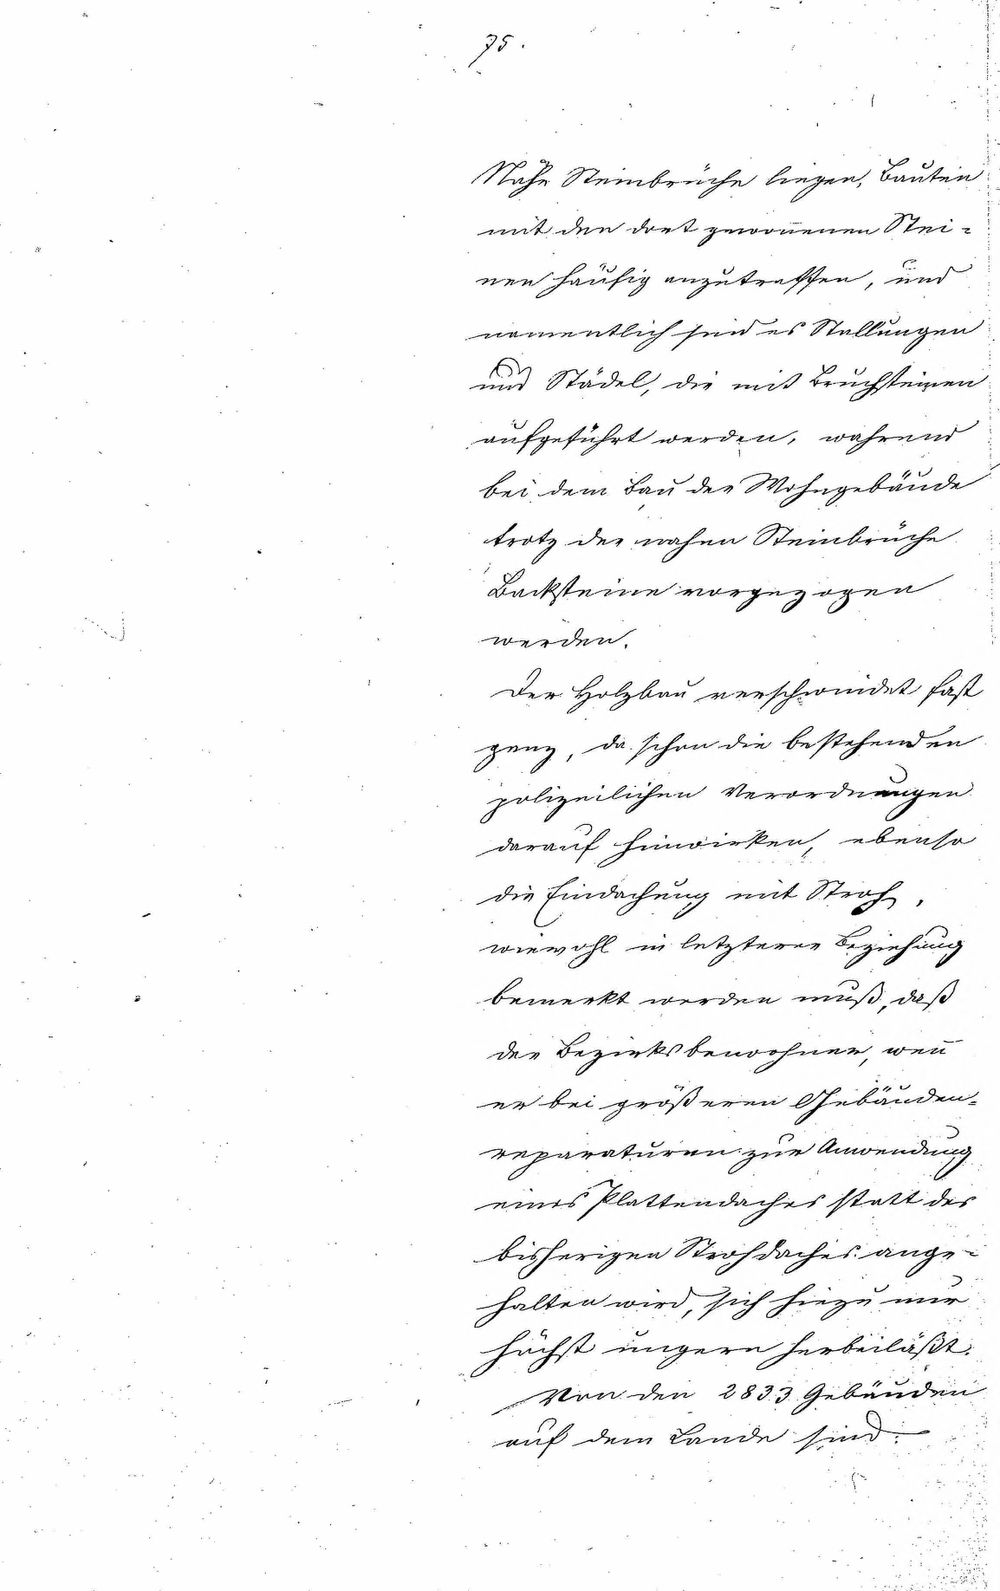 75.
Nähe Steinbrüche liegen, Bauten
mit den dort gewon̄enen Stei-
nen häufig anzutreffen, und
namentlich sind es Stallungen
und Städel, die mit Bruchsteinen
aufgeführt werden, während
bei dem Bau der Wohngebäude
trotz der nahen Steinbrüche
Backsteine vorgezogen
werden.
Der Holzbau verschwindet fast
ganz, da schon die bestehenden
polizeilichen Verordnungen
darauf hinwirken, ebenso
die Eindachung mit Stroh,
wiewohl in letzterer Beziehung
bemerkt werden muß, daß
der Bezirksbewohner, wen̄
er bei größeren Gebäuden-
reparaturen zur Anwendung
eines Plattendaches statt des
bisherigen Strohdaches ange-
halten wird, sich hiezu nur
höchst ungern herbeiläßt.
Von den 2833 Gebäuden
auf dem Lande sind: